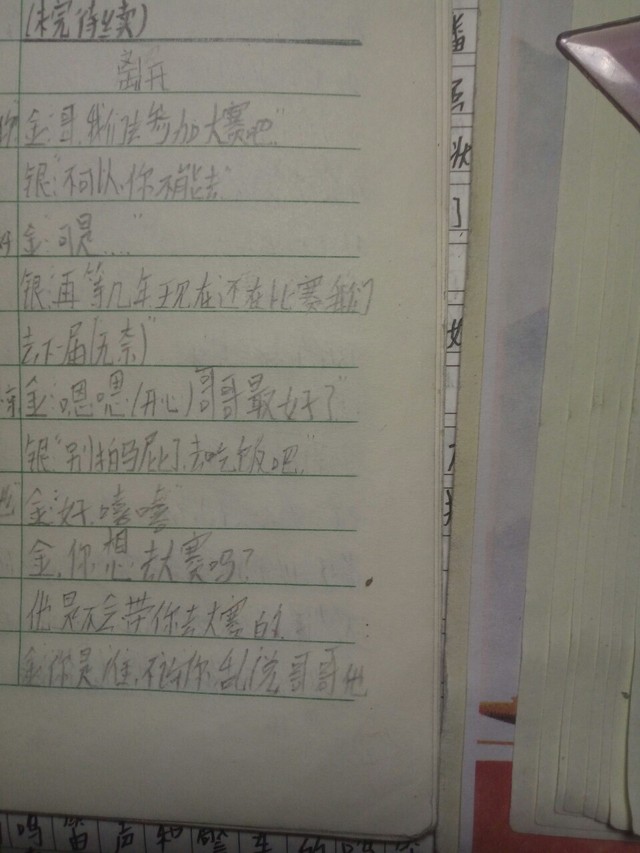 (未完待续)
离开
金:哥,我们去参加大赛吧"
银"不可以,你不能去"
金:可是……"
银:再等几年现在还在比赛我们
去下一届(无奈)"
金:嗯嗯(开心)哥哥最好了"
银"别拍马屁了,去吃饭吧"
金:好,嘻嘻"
金,你想去大赛吗?
他是不会带你去大赛的
金你是谁,不许你乱说哥哥他